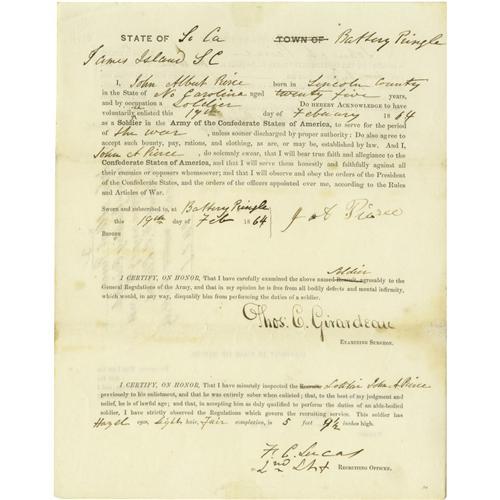 STATE OF So Ca TOWN OF Battery Pringle
James Island SC
I, John Albert Pierce born in Lincoln County
in the State of No Carolina aged twenty five years,
and by occupation a Soldier Do HEREBY ACKNOWLEDGE to have
voluntarily enlisted this 19th day of February 1864
as a Soldier in the Army of the Confederate States of America, to serve for the period
of the war, unless sooner discharged by proper authority; Do also agree to
accept such bounty, pay, rations, and clothing, as are, or may be, established by law. And I,
John A Pierce, do solemnly swear, that I will bear true faith and allegiance to the
Confederate States of America, and that I will serve them honestly and faithfully against all
their enemies or opposers whomsoever; and that I will observe and obey the orders of the President
of the Confederate States, and the orders of the officers appointed over me, according to the Rules
and Articles of War.
Sworn and subscribed to, at Battery Pringle
this 19th day of Feb 1864 J A Pierce
BEFORE
I CERTIFY, ON HONOR, That I have carefully examined the above named Recruit, Soldier agreeably to the
General Regulations of the Army, and that in my opinion he is free from all bodily defects and mental infirmity,
which would, in any way, disqualify him from performing the duties of a soldier.
Thos. C. Girardeau
EXAMINING SURGEON.
I CERTIFY, ON HONOR, That I have minutely inspected the Soldier John A Pierce
previously to his enlistment, and that he was entirely sober when enlisted; that, to the best of my judgment and
belief, he is of lawful age; and that, in accepting him as duly qualified to perform the duties of an able-bodied
soldier, I have strictly observed the Regulations which govern the recruiting service. This soldier has
Hazel eyes, Light hair, Fair complexion, is 5 feet 9½ inches high.
F. C. Lucas
2nd Lt RECRUITING OFFICER.